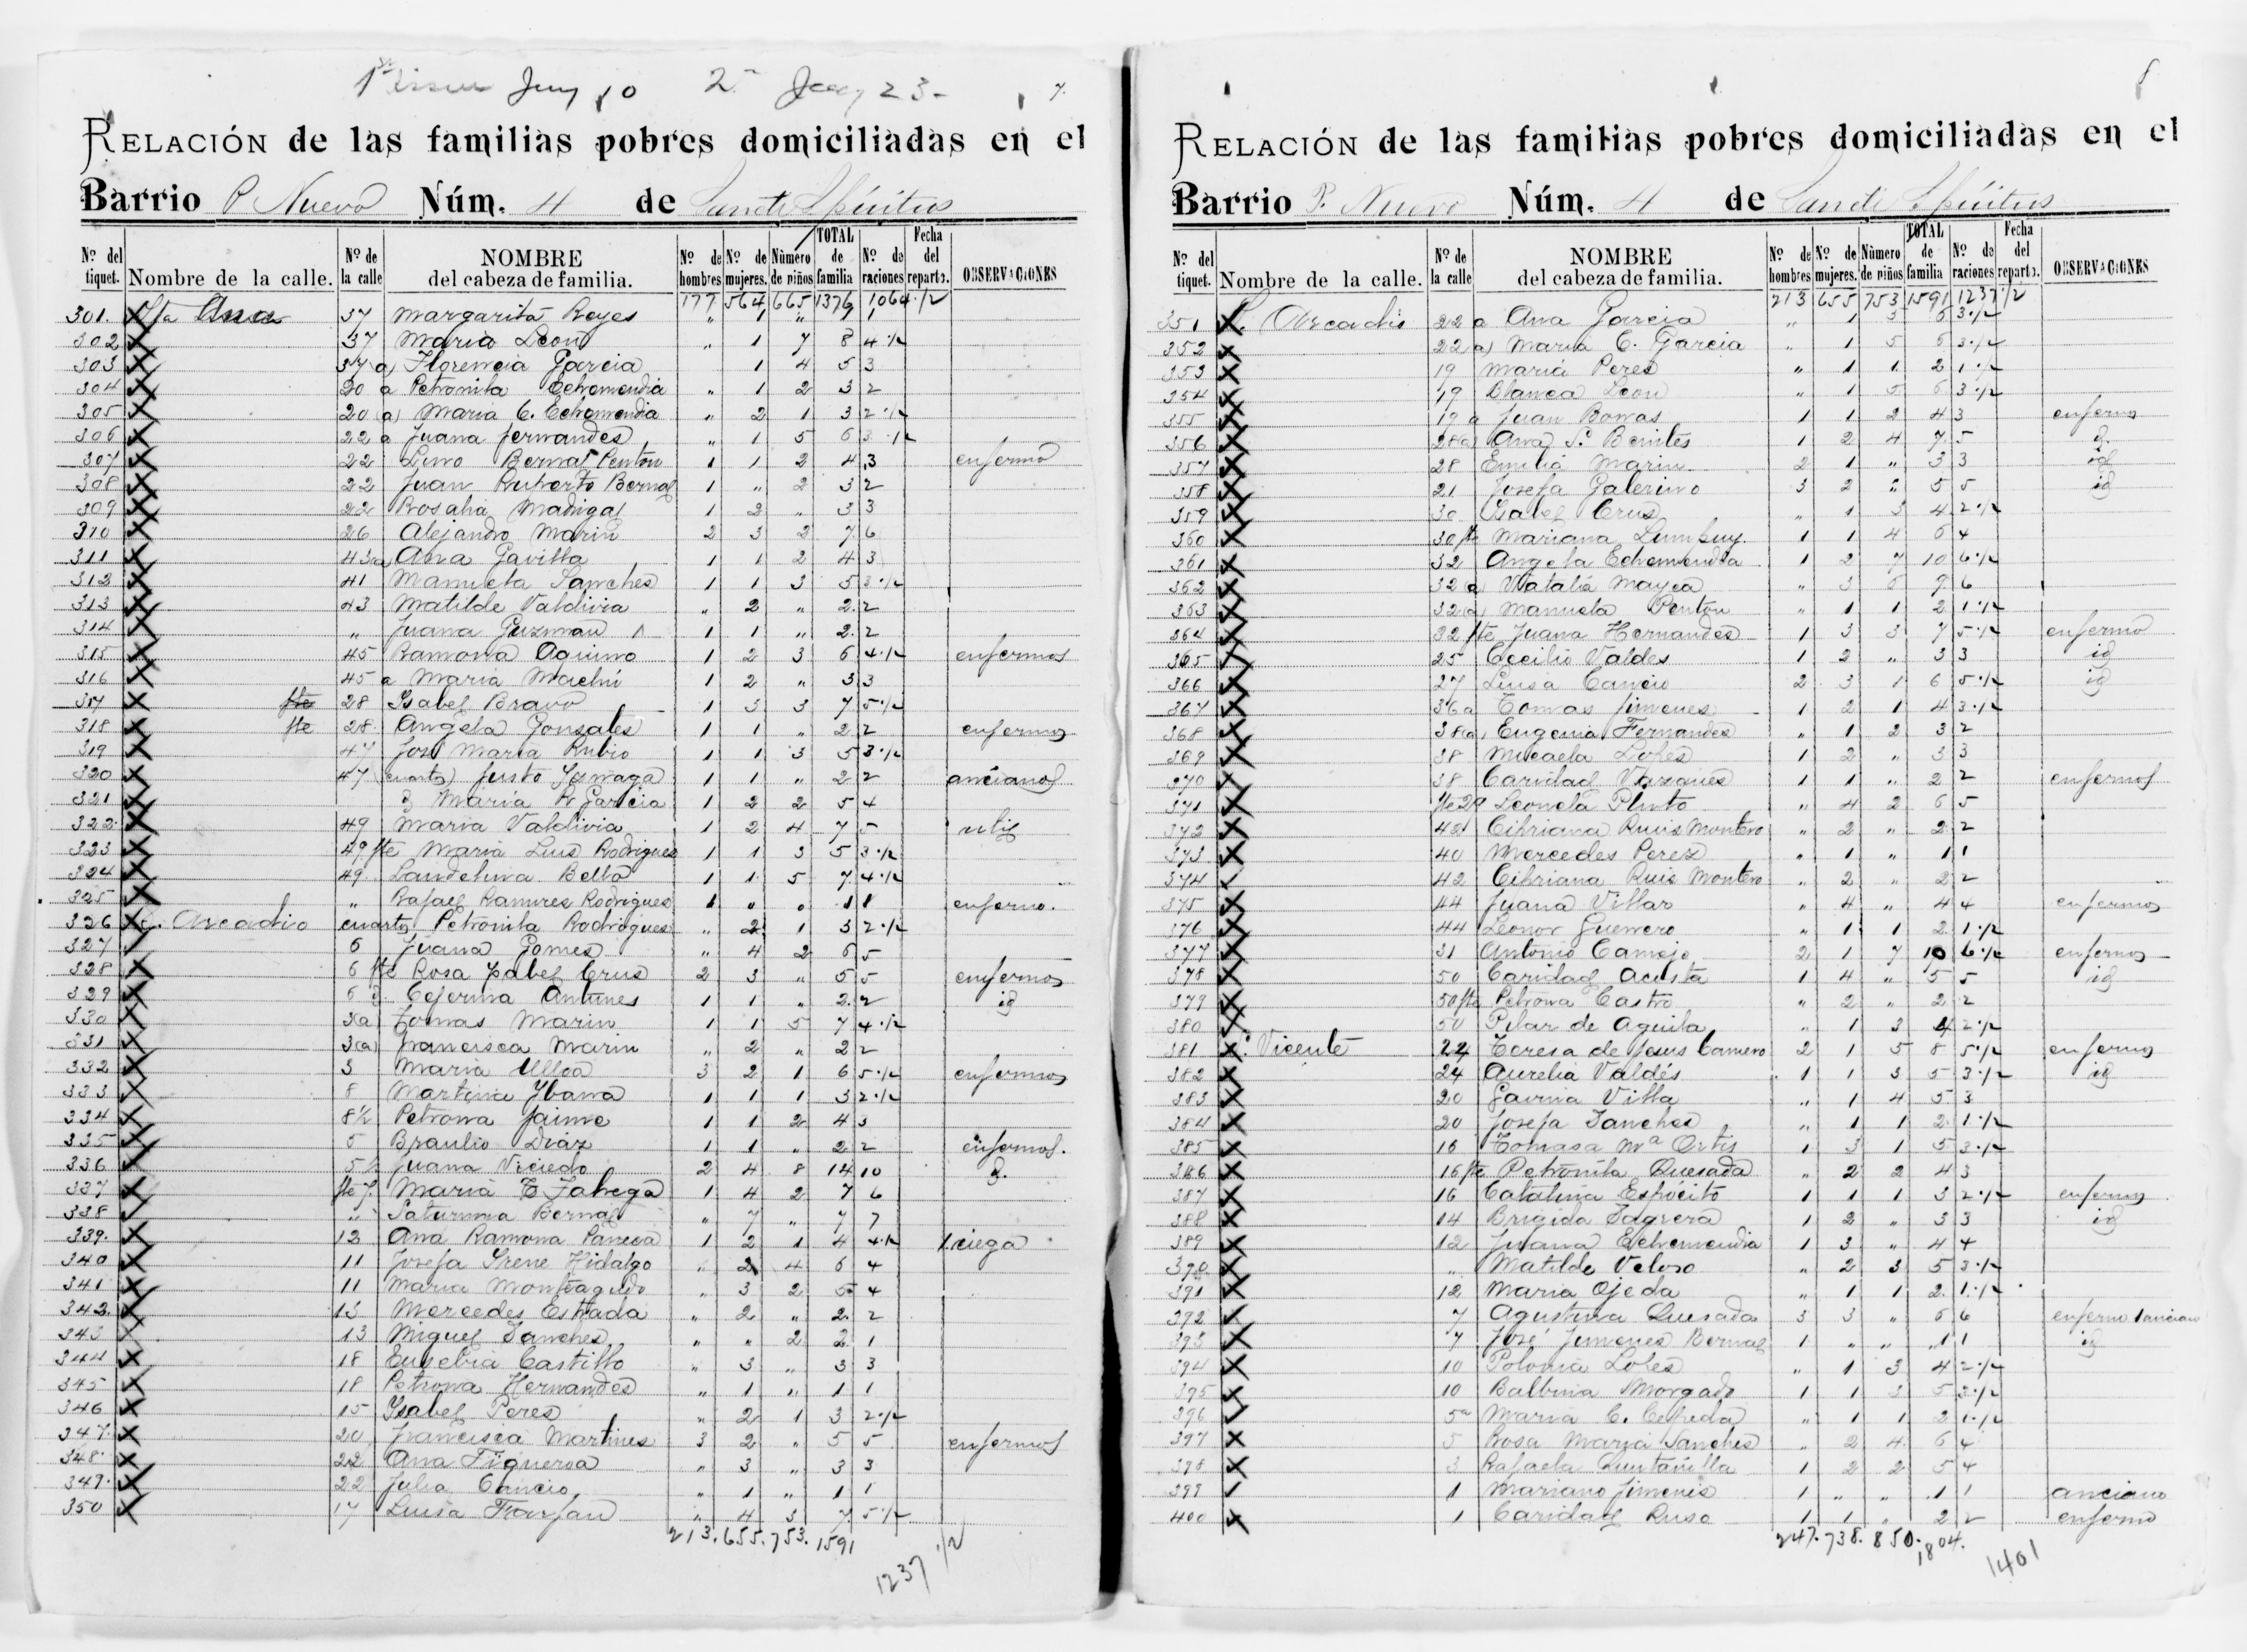 Jany 10 2 Jany 23-
7.
RELACIÓN de las familias pobres domiciliadas en el
Barrio P. Nuevo Núm. 4 de Sancti Spíritus
Nº del tiquet. Nombre de la calle. Nº de la calle NOMBRE del cabeza de familia. Nº de hombres Nº de mujeres. Número de niños TOTAL de familia Nº de raciones Fecha del reparto. OBSERVACIONES
177 564 665 1376 1064 1/2
301. Sta Ana 37 Margarita Reyes " 1 " 1 1
302 37 Maria Leon " 1 7 8 4 1/2
303 37 (a) Florencia Garcia 1 4 5 3
304 20 a Petronila Echemendia " 1 2 3 2
305 20 (a) Maria C. Echemendia " 2 1 3 2 1/2
306 22 a Juana Fernandes " 1 5 6 3 1/2
307 22 Lino Bernal Penton 1 1 2 4 3 enfermo
308 22 Juan Ruberto Bernal 1 " 2 3 2
309 22 Rosalia Madrigal 1 2 " 3 3
310 26 Alejandro Marin 2 3 2 7 6
311 43 (a) Ana Gavilla 1 1 2 4 3
312 41 Manuela Sanches 1 1 3 5 3 1/2
313 43 Matilde Valdivia " 2 " 2 2
314 " Juana Guzman 1 1 " 2 2
315 45 Ramona Aquino 1 2 3 6 4 1/2 enfermos
316 45 a Maria Machin 1 2 " 3 3
317 fte 28 Ysabel Bravo 1 3 3 7 5 1/2
318 fte 28 Angela Gonsales 1 1 " 2 2 enfermos
319 47 José Maria Rubio 1 1 3 5 3 1/2
320 47 (cuarto) Justo 1 1 " 2 2 ancianos
321 Maria R. Garcia 1 2 2 5 4
322 49 Maria Valdivia 1 2 4 7 5
323 49 fte Maria Luis Rodrigues 1 1 3 5 3 1/2
324 49 Landelina Bello 1 1 5 7 4 1/2
325 " Rafael Ramires Rodrigues 1 " " 1 1 enfermo.
326 S. Arcadio cuarto Petronila Rodrigues " 2 1 3 2 1/2
327 6 Juana Gomes " 4 2 6 5
328 6 fte Rosa Ysabel Crus 2 3 " 5 5 enfermos
329 6 Ceferina Antunes 1 1 " 2 2 id
330 3(a) Tomas Marin 1 1 5 7 4 1/2
331 3(a) Francisca Marin " 2 " 2 2
332 3 Maria Ulloa 3 2 1 6 5 1/2 enfermos
333 8 Martina Ybarra 1 1 1 3 2 1/2
334 8 1/2 Petrona Jaime 1 1 2 4 3
335 5 Braulio Diaz 1 1 " 2 2 enfermos.
336 5 1/2 Juana Viciedo 2 4 8 14 10
337 fte 7. Maria T. Fabrega 1 4 2 7 6
338 " Saturnina Bernal " 7 " 7 7
339. 12 Ana Ramona 1 2 1 4 4 1/2 1 ciega
340 11 Josefa Yrene Hidalgo " 2 4 6 4
341 11 Maria Monteagudo " 3 2 5 4
342. 13 Mercedes Estrada " 2 " 2 2
343 13 Miguel Sanches " " 2 2 1
344 18 Eusebia Castillo " 3 " 3 3
345 18 Petrona Hernandes " 1 " 1 1
346 15 Ysabel Peres " 2 1 3 2 1/2
347. 20 Francisca Martines 3 2 " 5 5 enfermos
348. 22 Ana Figueroa " 3 " 3 3
349. 22 Julia Cancio " 1 " 1 1
350 17 Luisa Farfan " 4 3 7 5 1/2
213. 655. 753. 1591
1237 1/2
8
RELACIÓN de las familias pobres domiciliadas en el
Barrio P. Nuevo Núm. 4 de Sancti Spíritus
Nº del tiquet. Nombre de la calle. Nº de la calle NOMBRE del cabeza de familia. Nº de hombres Nº de mujeres. Número de niños TOTAL de familia Nº de raciones Fecha del reparto. OBSERVACIONES
213 655 753 1591 1237 1/2
351 S. Arcadio 22 a Ana Garcia " 1 5 6 3 1/2
352 22 (a) Maria C. Garcia " 1 5 6 3 1/2
353 19 Maria Peres " 1 1 2 1 1/2
354 19 Blanca Leon " 1 5 6 3 1/2
355 19 a Juan Borras 1 1 2 4 3 enfermo
356 28(a) Ana S. Benites 1 2 4 7 5 d.
357 28 Emilia Marin 2 1 " 3 3 id
358 21 Josefa Galerino 3 2 " 5 5 id
359 30 Ysabel Crus " 1 3 4 2 1/2
360 30 fte Mariana Lumpuy 1 1 4 6 4
361 32 Angela Echemendia 1 2 7 10 6 1/2
362 32 (a) Natalia Mayea " 3 6 9 6
363 32(a) Manuela Penton " 1 1 2 1 1/2
364 32 fte Juana Hernandes 1 3 3 7 5 1/2 enfermo
365 25 Cecilio Valdes 1 2 " 3 3 id
366 27 Luisa Cancio 2 3 1 6 5 1/2 id
367 36 a Tomas Jimenes 1 2 1 4 3 1/2
368 38(a) Eugenia Fernandes " 1 2 3 2
369 38 Micaela Lopes 1 2 " 3 3
370 38 Caridad Vazques 1 1 " 2 2 enfermos
371 fte 29 Leonela Pluto " 4 2 6 5
372 42 Cipriana Ruis Montero " 2 " 2 2
373 40 Mercedes Perez " 1 " 1 1
374 42 Cipriana Ruis Montero " 2 " 2 2
375 44 Juana Villar " 4 " 4 4 enfermos
376 44 Leonor Guerrero " 1 1 2 1 1/2
377 31 Antonio Camejo 2 1 7 10 6 1/2 enfermos
378 50 Caridad Acosta 1 4 " 5 5 id
379 50 fte Petrona Castro " 2 " 2 2
380 50 Pilar de Aguila " 1 3 4 2 1/2
381 S. Vicente 24 Teresa de Jesus Camero 2 1 5 8 5 1/2 enfermo
382 24 Aurelia Valdés 1 1 3 5 3 1/2 id
383 20 Gavina Villa " 1 4 5 3
384 20 Josefa Sanches " 1 1 2 1 1/2
385 16 Tomasa Mª Ortis 1 3 1 5 3 1/2
386 16 fte Petronila Quesada " 2 2 4 3
387 16 Catalina Espocito 1 1 1 3 2 1/2 enfermo
388 14 Brigida 1 2 " 3 3 id
389 12 Juana Echemendia 1 3 " 4 4
390 " Matilde Veloso " 2 3 5 3 1/2
391 12 Maria Ojeda " 1 1 2 1 1/2
392 7 Agustina Quesada 3 3 " 6 6 enfermo 1 anciano
393 7 José Jimenes Bernal 1 " " 1 1 id
394 10 Polonia Lopes " 1 3 4 2 1/2
395 10 Balbina Morgado 1 1 3 5 3 1/2
396 5ª Maria C. Cepeda " 1 1 2 1 1/2
397 5 Rosa Maria Sanches " 2 4 6 4
398 3 Rafaela Quintanilla 1 2 2 5 4
399 1 Mariano Jimenis 1 " " 1 1 anciano
400 1 Caridad Ruso 1 1 " 2 2 enfermo
247. 738. 850. 1804.
1401